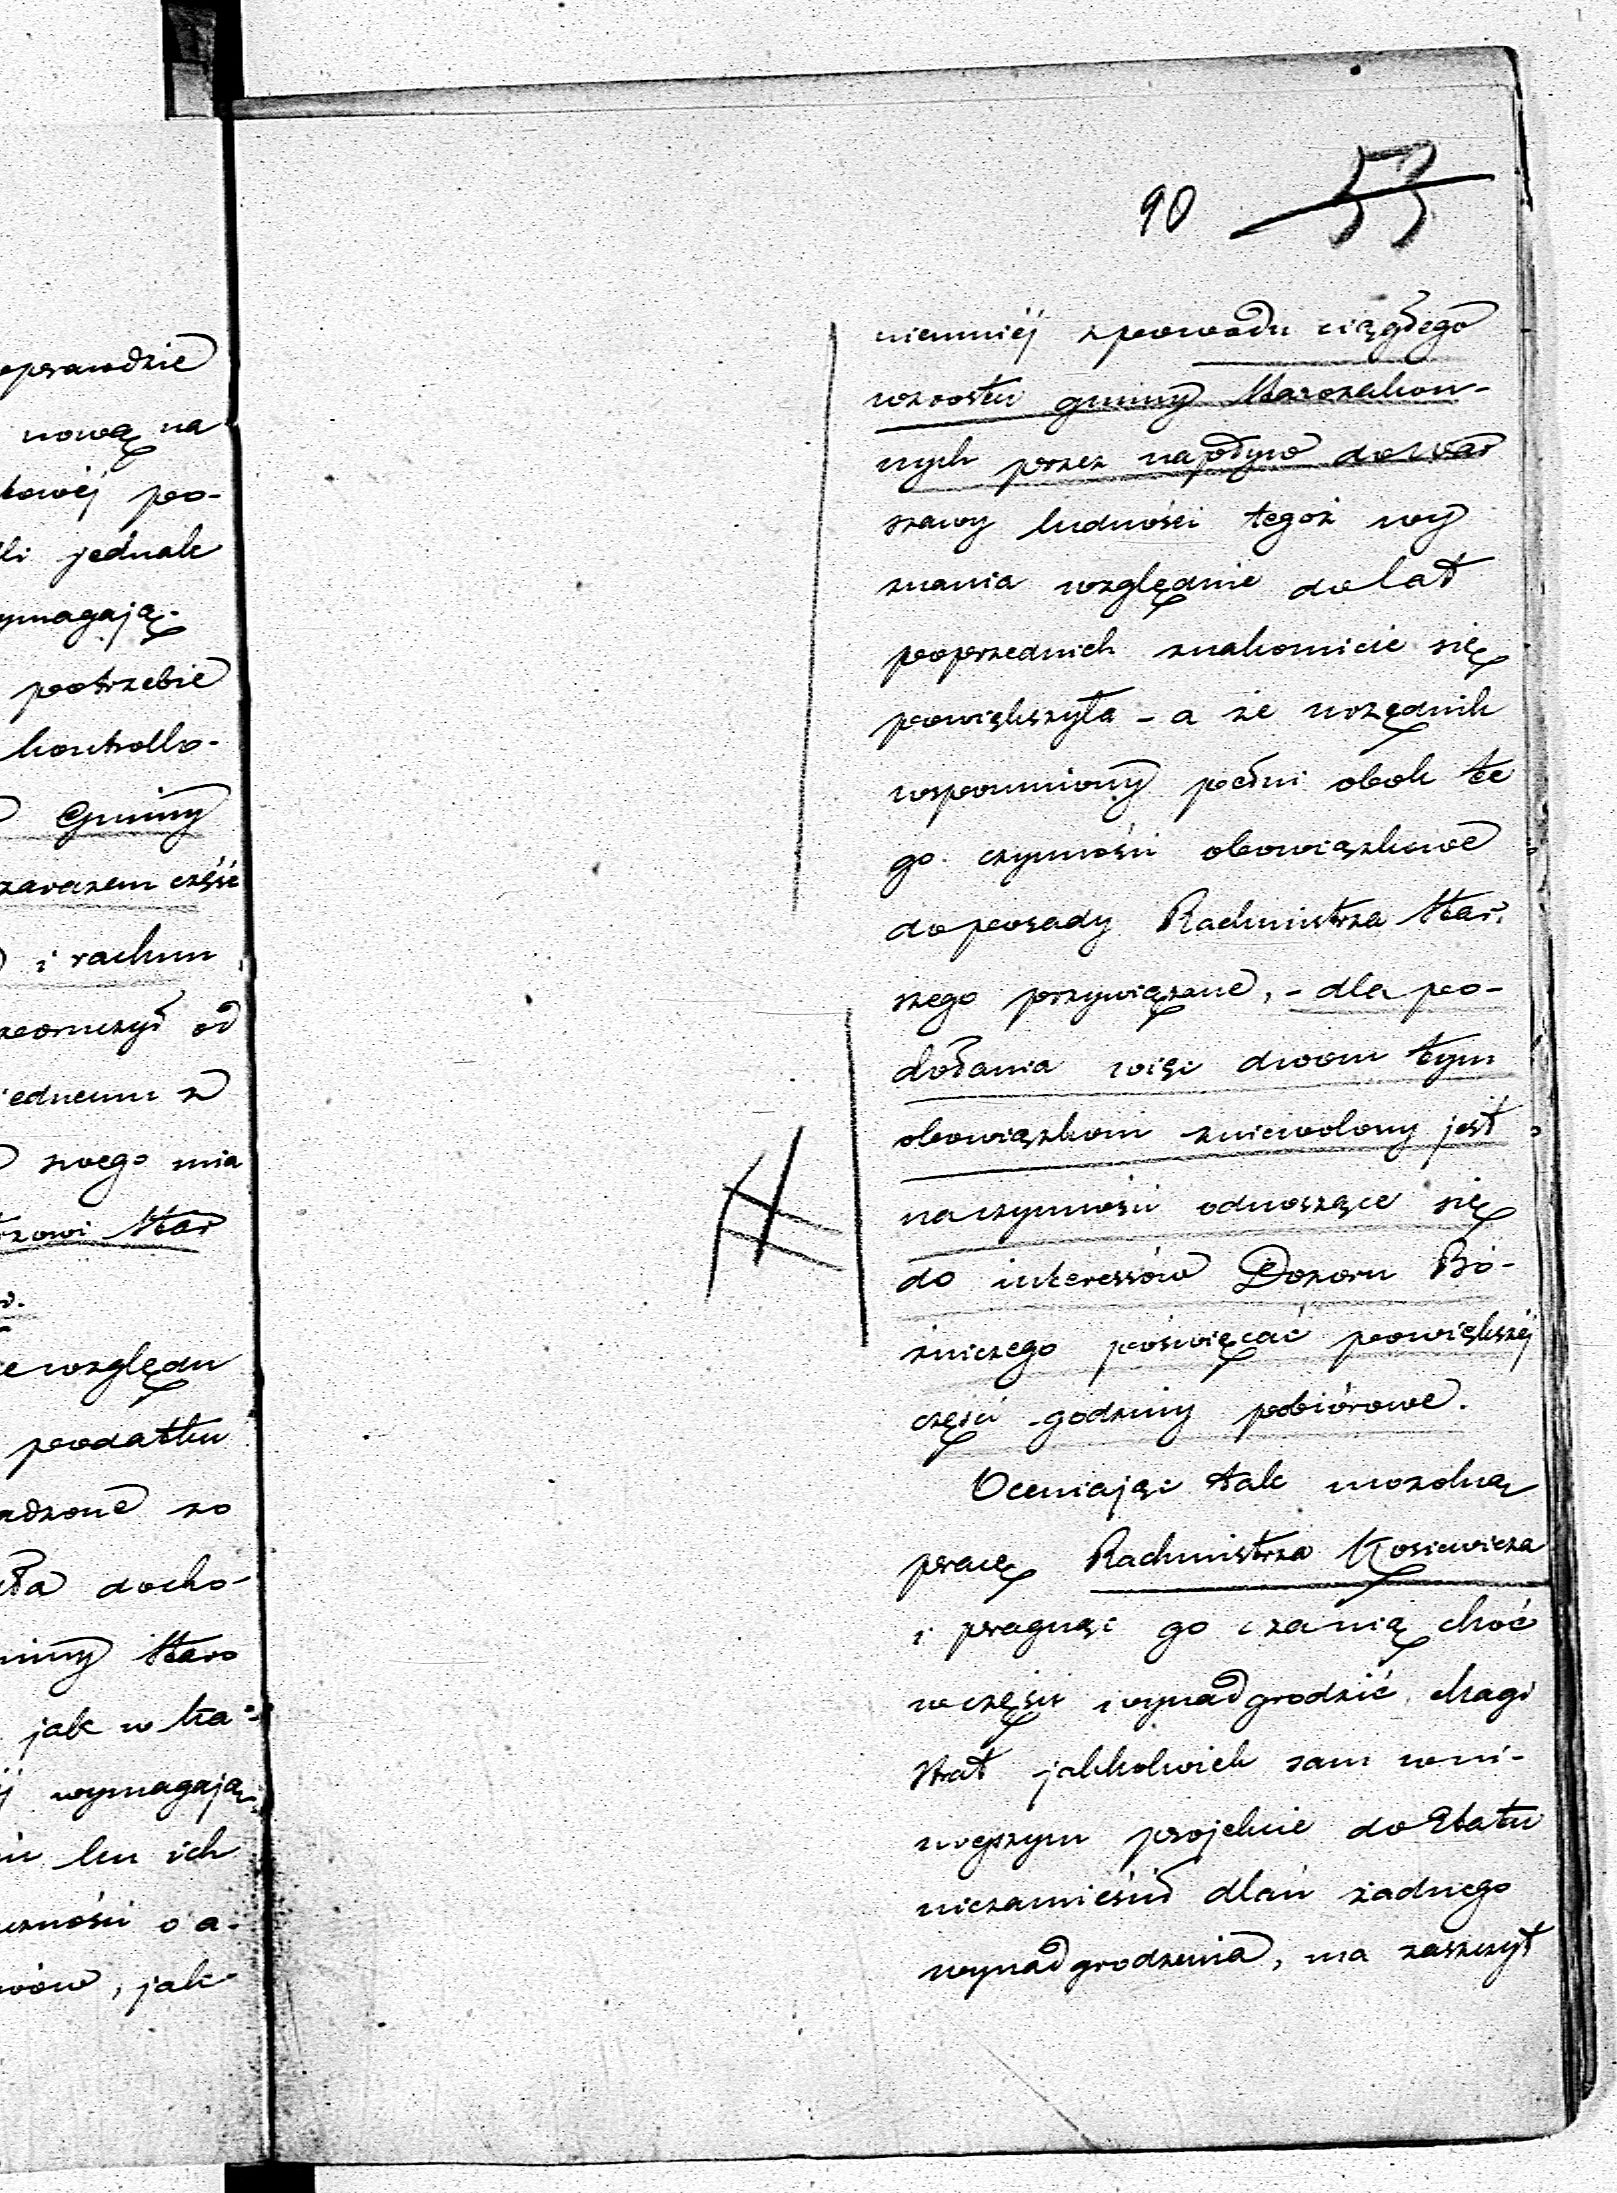 oprawdzie
nową na
kowéj po-
li jednak
ymagają-
potrzebie
kontrollo-
Gminy
zarazem część
i rachun
poruczył od
iednemu z
swego mia
rzowi Star
ze względu
podatku
adzone zo
ła docho-
miny Staro
jak w ka-
éj wymagają
iu ku ich
czności o a-
wów, jak
90 53
niemniéj zpowodu ciągłego
wzrostu gminy Starozakon-
nych przez napływ do War
szawy ludności tegoż wy
znania względnie do lat
poprzednich znakomicie się
powiększyła - a że urzędnik
wspomniony pełni obok te
go czynności obowiązkowe
do posady Rachmistrza Star-
szego przywiązane, - dla po-
dołania więc dwom tym
obowiązkom zniewolony jest
na czynności odnoszące się
do interessów Dozoru Bó-
źniczego poświęcać powiększéj
części godziny pobiórowe.
Oceniając tak mozolną
pracę Rachmistrza Kosiewicza
i pragnąc go za nią choć
w części wynadgrodzić Magi
strat jakkolwiek sam w ni-
niejszym projekcie do Etatu
niezamieścił dlań żadnego
wynadgrodzenia, ma zaszczyt